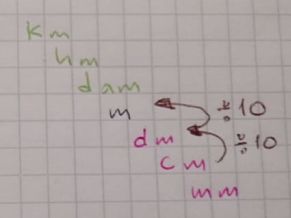 Km
hm
dam
m ÷10
dm ÷10
cm
mm